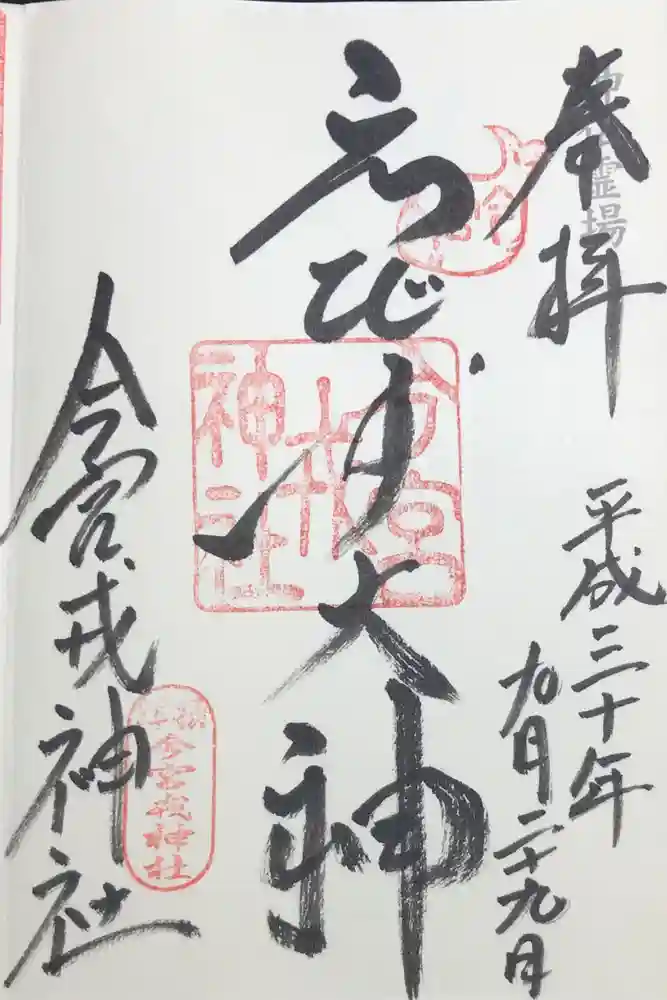 奉拝
平成三十年
九月二十九日
ゑびす大神
今宮戎神社
神社霊場
今宮
戎
神社
今宮戎神社